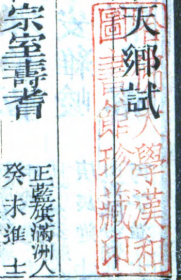 天鄉試
宗室壽耆
正藍旗滿洲人
癸未進士
學漢和
圖書館珍藏印